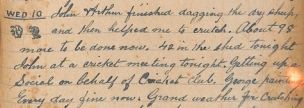 WED 10 John Arthur finished dagging the dry sheep,
and then helped me to crutch. About 98
more to be done now. 40 in the shed tonight
John at a cricket meeting tonight. Getting up a
Social on behalf of Cricket Club. George
Every day fine now. Grand weather for Crutching